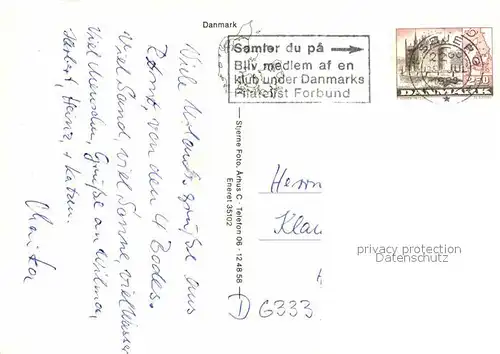 Danmark
Samler du på
Bliv medlem af en
klub under Danmarks
Filatelist Forbund
ESBJERG
DANMARK
Viele Urlaubsgrüße aus
von den 4 Bodes.
Viel Sand, viel Sonne, viel Wasser
viel Menschen, Grüße an Wilma,
Herbert, Heinz, + Katrin.
Stjerne Foto, Århus C · Telefon 06 - 12 48 58
Eneret 35102
Herrn
Klau
D 6333
privacy protection
Datenschutz